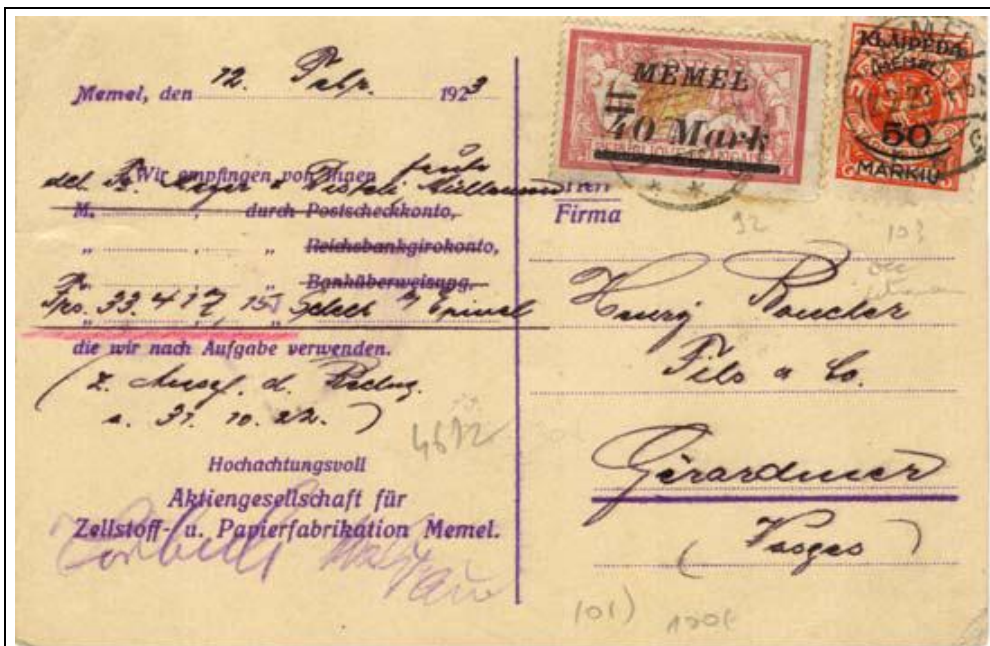 Memel, den 12. Febr. 1923
Wir empfingen von Ihnen heute
M. durch Postscheckkonto,
„ „ Reichsbankgirokonto,
Banküberweisung,
Frs. 33.417,15 Scheck a/ Epinal
die wir nach Aufgabe verwenden.
(z. Ausgl. d. Rechng.
v. 31. 10. 22.)
Hochachtungsvoll
Aktiengesellschaft für
Zellstoff- u. Papierfabrikation Memel.
MEMEL
40 Mark
KLAIPĖDA
(MEMEL)
50
MARKIŲ
Firma
Henry Boucher
Fils & Co.
Gérardmer
(Vosges)
92
103
101)